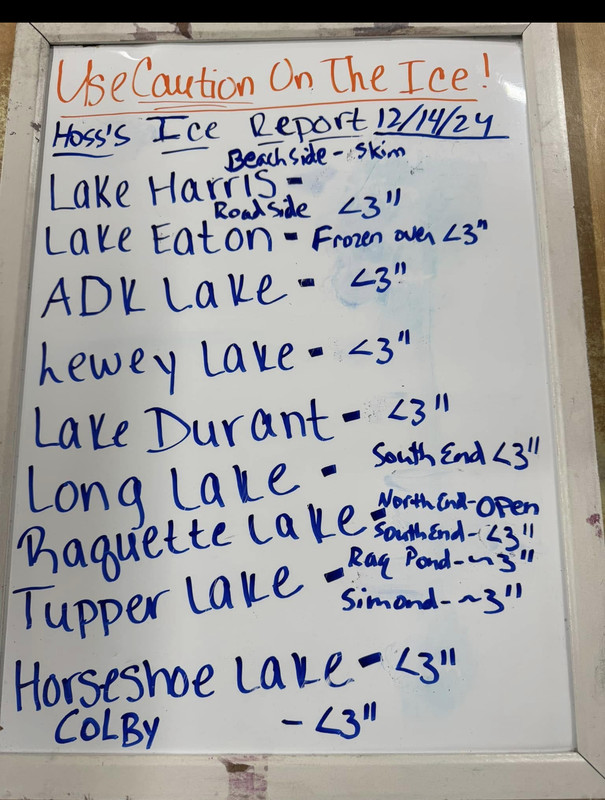 Use Caution On The Ice!
Hoss's Ice Report 12/14/24
Beachside - Skim
Lake Harris -
Roadside <3"
Lake Eaton - Frozen over <3"
ADK Lake - <3"
Lewey Lake - <3"
Lake Durant - <3"
Long Lake - South End <3"
Raquette Lake - North End - Open
South End - <3"
Tupper Lake - Raq Pond - ~3"
Simond - ~3"
Horseshoe Lake - <3"
COLBY - <3"